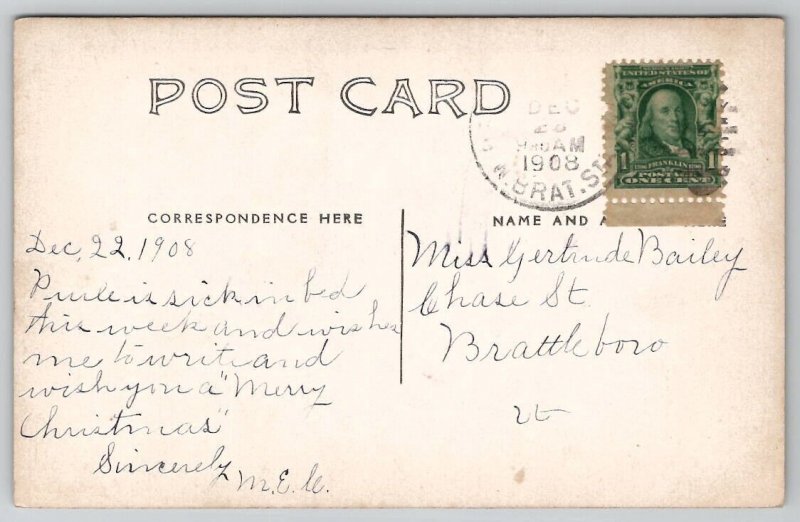 POST CARD
DEC
9-30AM
1908
W.BRAT. ST
UNITED STATES OF
AMERICA
1 FRANKLIN 1
POSTAGE
ONE CENT
CORRESPONDENCE HERE
NAME AND A
Dec, 22, 1908
is sick in bed
this week and wishes
me to write and
wish you a "Merry
Christmas"
Sincerely
M.E.C.
Miss Gertrude Bailey
Chase St.
Brattleboro
Vt